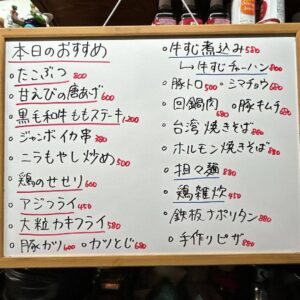 本日のおすすめ
・たこぶつ 800
・甘えびの唐あげ 600
・黒毛和牛ももステーキ 1200
・ジャンボイカ串 380
・ニラもやし炒め 500
・鶏のせせり 400
・アジフライ 450
・大粒カキフライ 580
・豚ガツ 600 ・カツとじ 680
・牛すじ煮込み 580
↳牛すじチャーハン 800
・豚トロ 500 ・シマチョウ 680
・回鍋肉 680 ・豚キムチ
・台湾焼きそば 880
・ホルモン焼きそば 880
・担々麺 880
・鶏雑炊 450
・鉄板ナポリタン 880
・手作りピザ 880